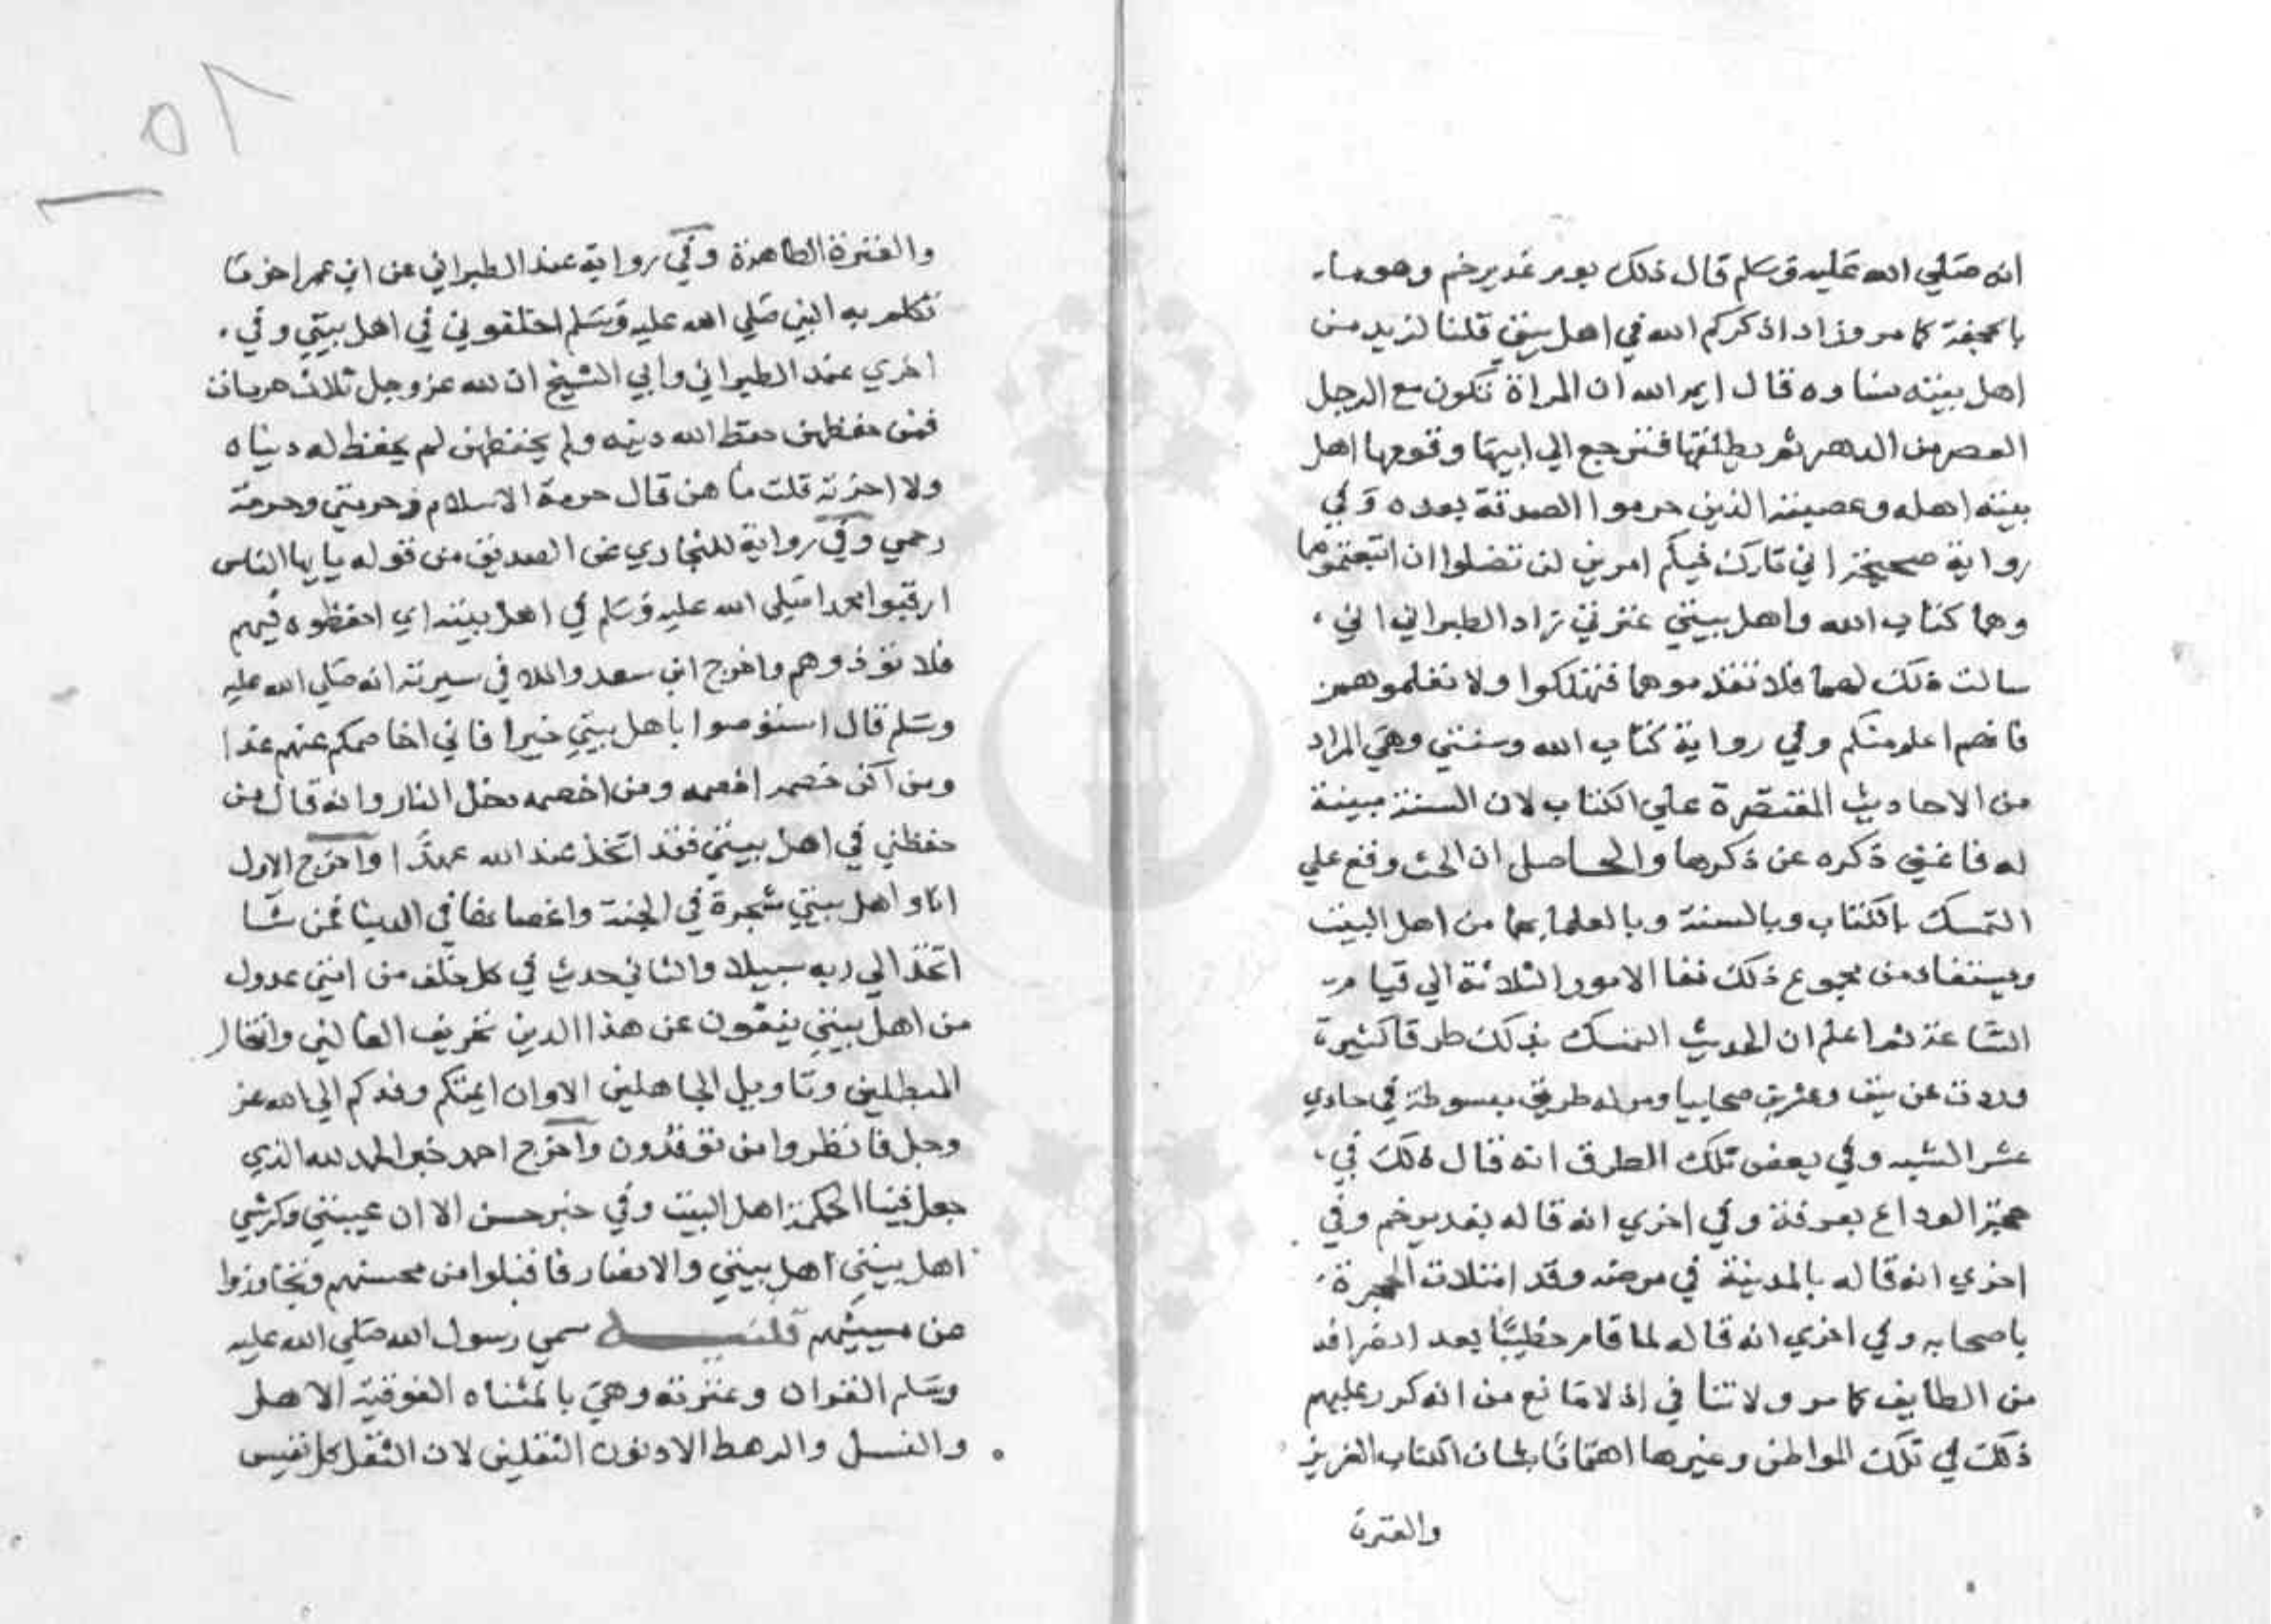 انه صلي الله عليه وسلم قال ذلك يوم غدير خم وهو ماء
بالجحفة كما مر وزاد اذكركم الله في اهل بيتي قلنا لزيد من
اهل بيته نساوه قال ايم الله ان المراة تكون مع الرجل
العصر من الدهر ثم يطلقها فترجع الي ابيها وقومها اهل
بيته اهله وعصبته الذين حرموا الصدقة بعده وفي
رواية صحيحة اني تارك فيكم امرين لن تضلوا ان اتبعتموهما
وهما كتاب الله واهل بيتي عترتي زاد الطبراني اني
سالت ذلك لهما فلا تقدموهما فتهلكوا ولا تعلموهم
فانهم اعلم منكم وفي رواية كتاب الله وسنتي وهي المراد
من الاحاديث المقتصرة علي الكتاب لان السنة مبينة
له فاغني ذكره عن ذكرها والحاصل ان الحث وقع علي
التمسك بالكتاب وبالسنة وبالعلما بهما من اهل البيت
ويستفاد من مجموع ذلك بقا الامور الثلاثة الي قيام
الساعة ثم اعلم ان لحديث التمسك بذلك طرقا كثيرة
وردت عن نيف وعشرين صحابيا ومر له طرق مبسوطة في حادي
عشر الشبه وفي بعض تلك الطرق انه قال ذلك في
حجة الوداع بعرفة وفي اخري انه قاله بغدير خم وفي
اخري انه قاله بالمدينة في مرضه وقد امتلات الحجرة
باصحابه وفي اخري انه قاله لما قام خطيبا بعد انصرافه
من الطايف كما مر ولا تنافي اذ لا مانع من انه كرر عليهم
ذلك في تلك المواطن وغيرها اهتماما بشان الكتاب العزيز
والعترة
والعترة الطاهرة وفي رواية عند الطبراني عن ابن عمر اخر ما
تكلم به النبي صلي الله عليه وسلم اخلفوني في اهل بيتي وفي
اخري عند الطبراني وابي الشيخ ان لله عز وجل ثلاث حرمات
فمن حفظهن حفظ الله دينه ولم يحفظهن لم يحفظ له دنياه
ولا اخرته قلت ما هن قال حرمة الاسلام وحرمتي وحرمة
رحمي وفي رواية للبخاري عن الصديق من قوله يا يها الناس
ارقبوا محمدا صلي الله عليه وسلم في اهل بيته اي احفظوه فيهم
فلا توذوهم واخرج ابن سعد والملا في سيرته انه صلي الله عليه
وسلم قال استوصوا باهل بيتي خيرا فاني اخاصمكم عنهم غدا
ومن اكن خصمه اخصمه ومن اخصمه دخل النار وانه قال من
حفظني في اهل بيتي فقد اتخذ عند الله عهدا واخرج الاول
انا واهل بيتي شجرة في الجنة واغصانها في الدينا فمن شا
اتخذ الي ربه سبيلا والثاني حديث في كل خلف من امتي عدول
من اهل بيتي ينفون عن هذا الدين تحريف الغالين وانتحال
المبطلين وتاويل الجاهلين الا وان ايمتكم وفدكم الي الله عز
وجل فانظروا من توفدون واخرج احمد خبر الحمد لله الذي
جعل فينا الحكمة اهل البيت وفي خبر حسن الا ان عيبتي وكرشي
اهل بيتي اهل بيتي والانصار فاقبلوا من محسنهم وتجاوزوا
عن مسيئهم تنبيه سمي رسول الله صلي الله عليه
وسلم القران وعترته وهي بالمثناه الفوقية الاهل
والنسل والرهط الادنون الثقلين لان الثقل كل نفيس